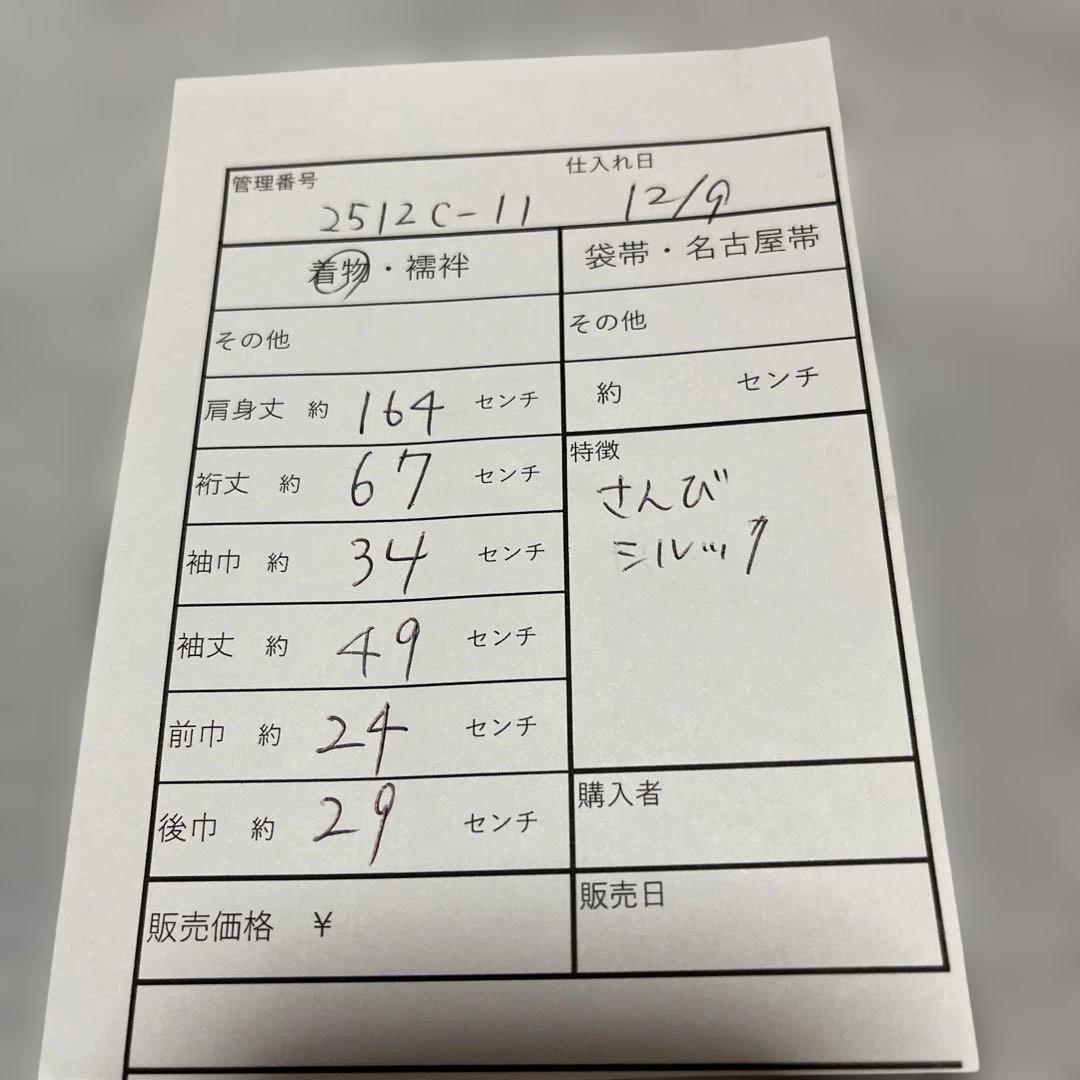 管理番号 仕入れ日
2512C-11 12/9
着物・襦袢 袋帯・名古屋帯
その他 その他
肩身丈 約 164 センチ 約 センチ
裄丈 約 67 センチ 特徴
さんび
袖巾 約 34 センチ シルック
袖丈 約 49 センチ
前巾 約 24 センチ
後巾 約 29 センチ 購入者
販売価格 ¥ 販売日